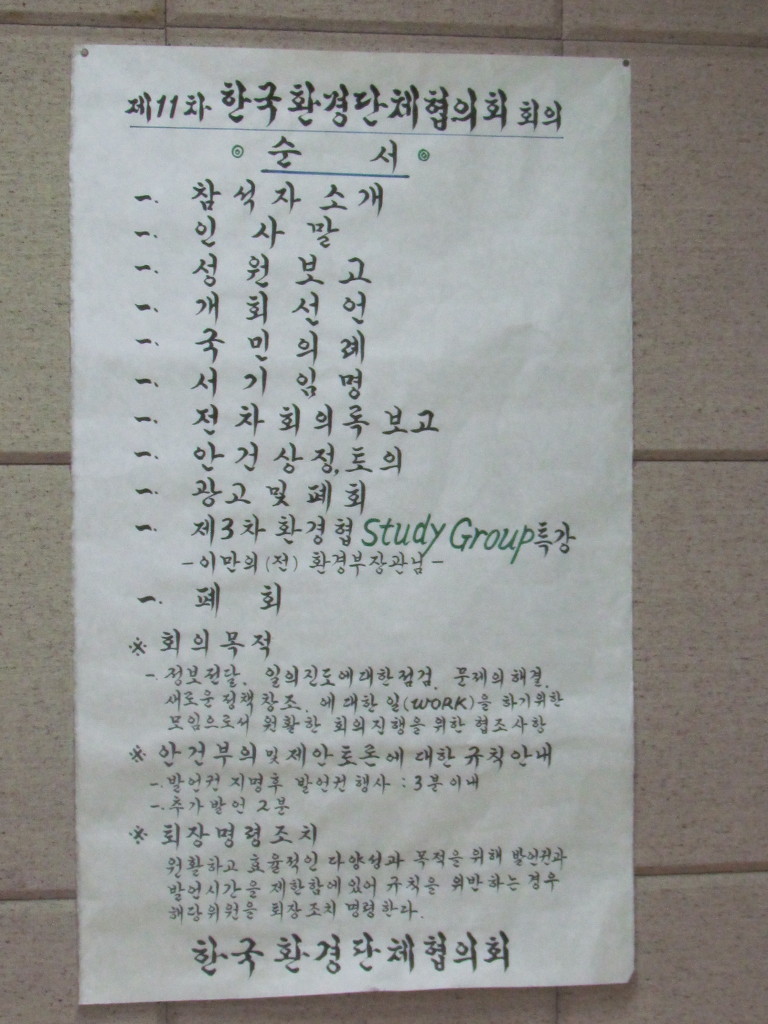 제11차 한국환경단체협의회 회의
◎ 순 서 ◎
一. 참석자 소개
一. 인 사 말
一. 성 원 보 고
一. 개 회 선 언
一. 국 민 의 례
一. 서 기 임 명
一. 전 차 회 의 록 보 고
一. 안 건 상 정, 토 의
一. 광 고 및 폐 회
一. 제3차 환경협 Study Group 특강
- 이만의 (전) 환경부장관님 -
一. 폐 회
※ 회 의 목 적
-. 정보전달. 일의진도에대한점검. 문제의 해결.
새로운 정책 창조. 에 대한 일(WORK)을 하기위한
모임으로서 원활한 회의 진행을 위한 협조사항
※ 안건부의 및 제안토론에 대한 규칙안내
-. 발언권 지명후 발언권 행사 : 3분이내
-. 추가발언 2분
※ 퇴장명령조치
원활하고 효율적인 다양성과 목적을 위해 발언권과
발언시간을 제한함에 있어 규칙을 위반하는 경우
해당위원을 퇴장 조치 명령한다.
한국환경단체협의회